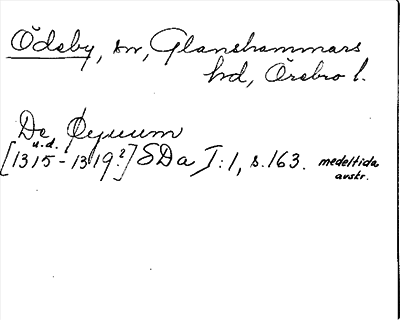 Ödeby, sn, Glanshammars
hd, Örebro l.
De
u.d.
[1315-1319?] SDa I:1, s.163. medeltida
avskr.